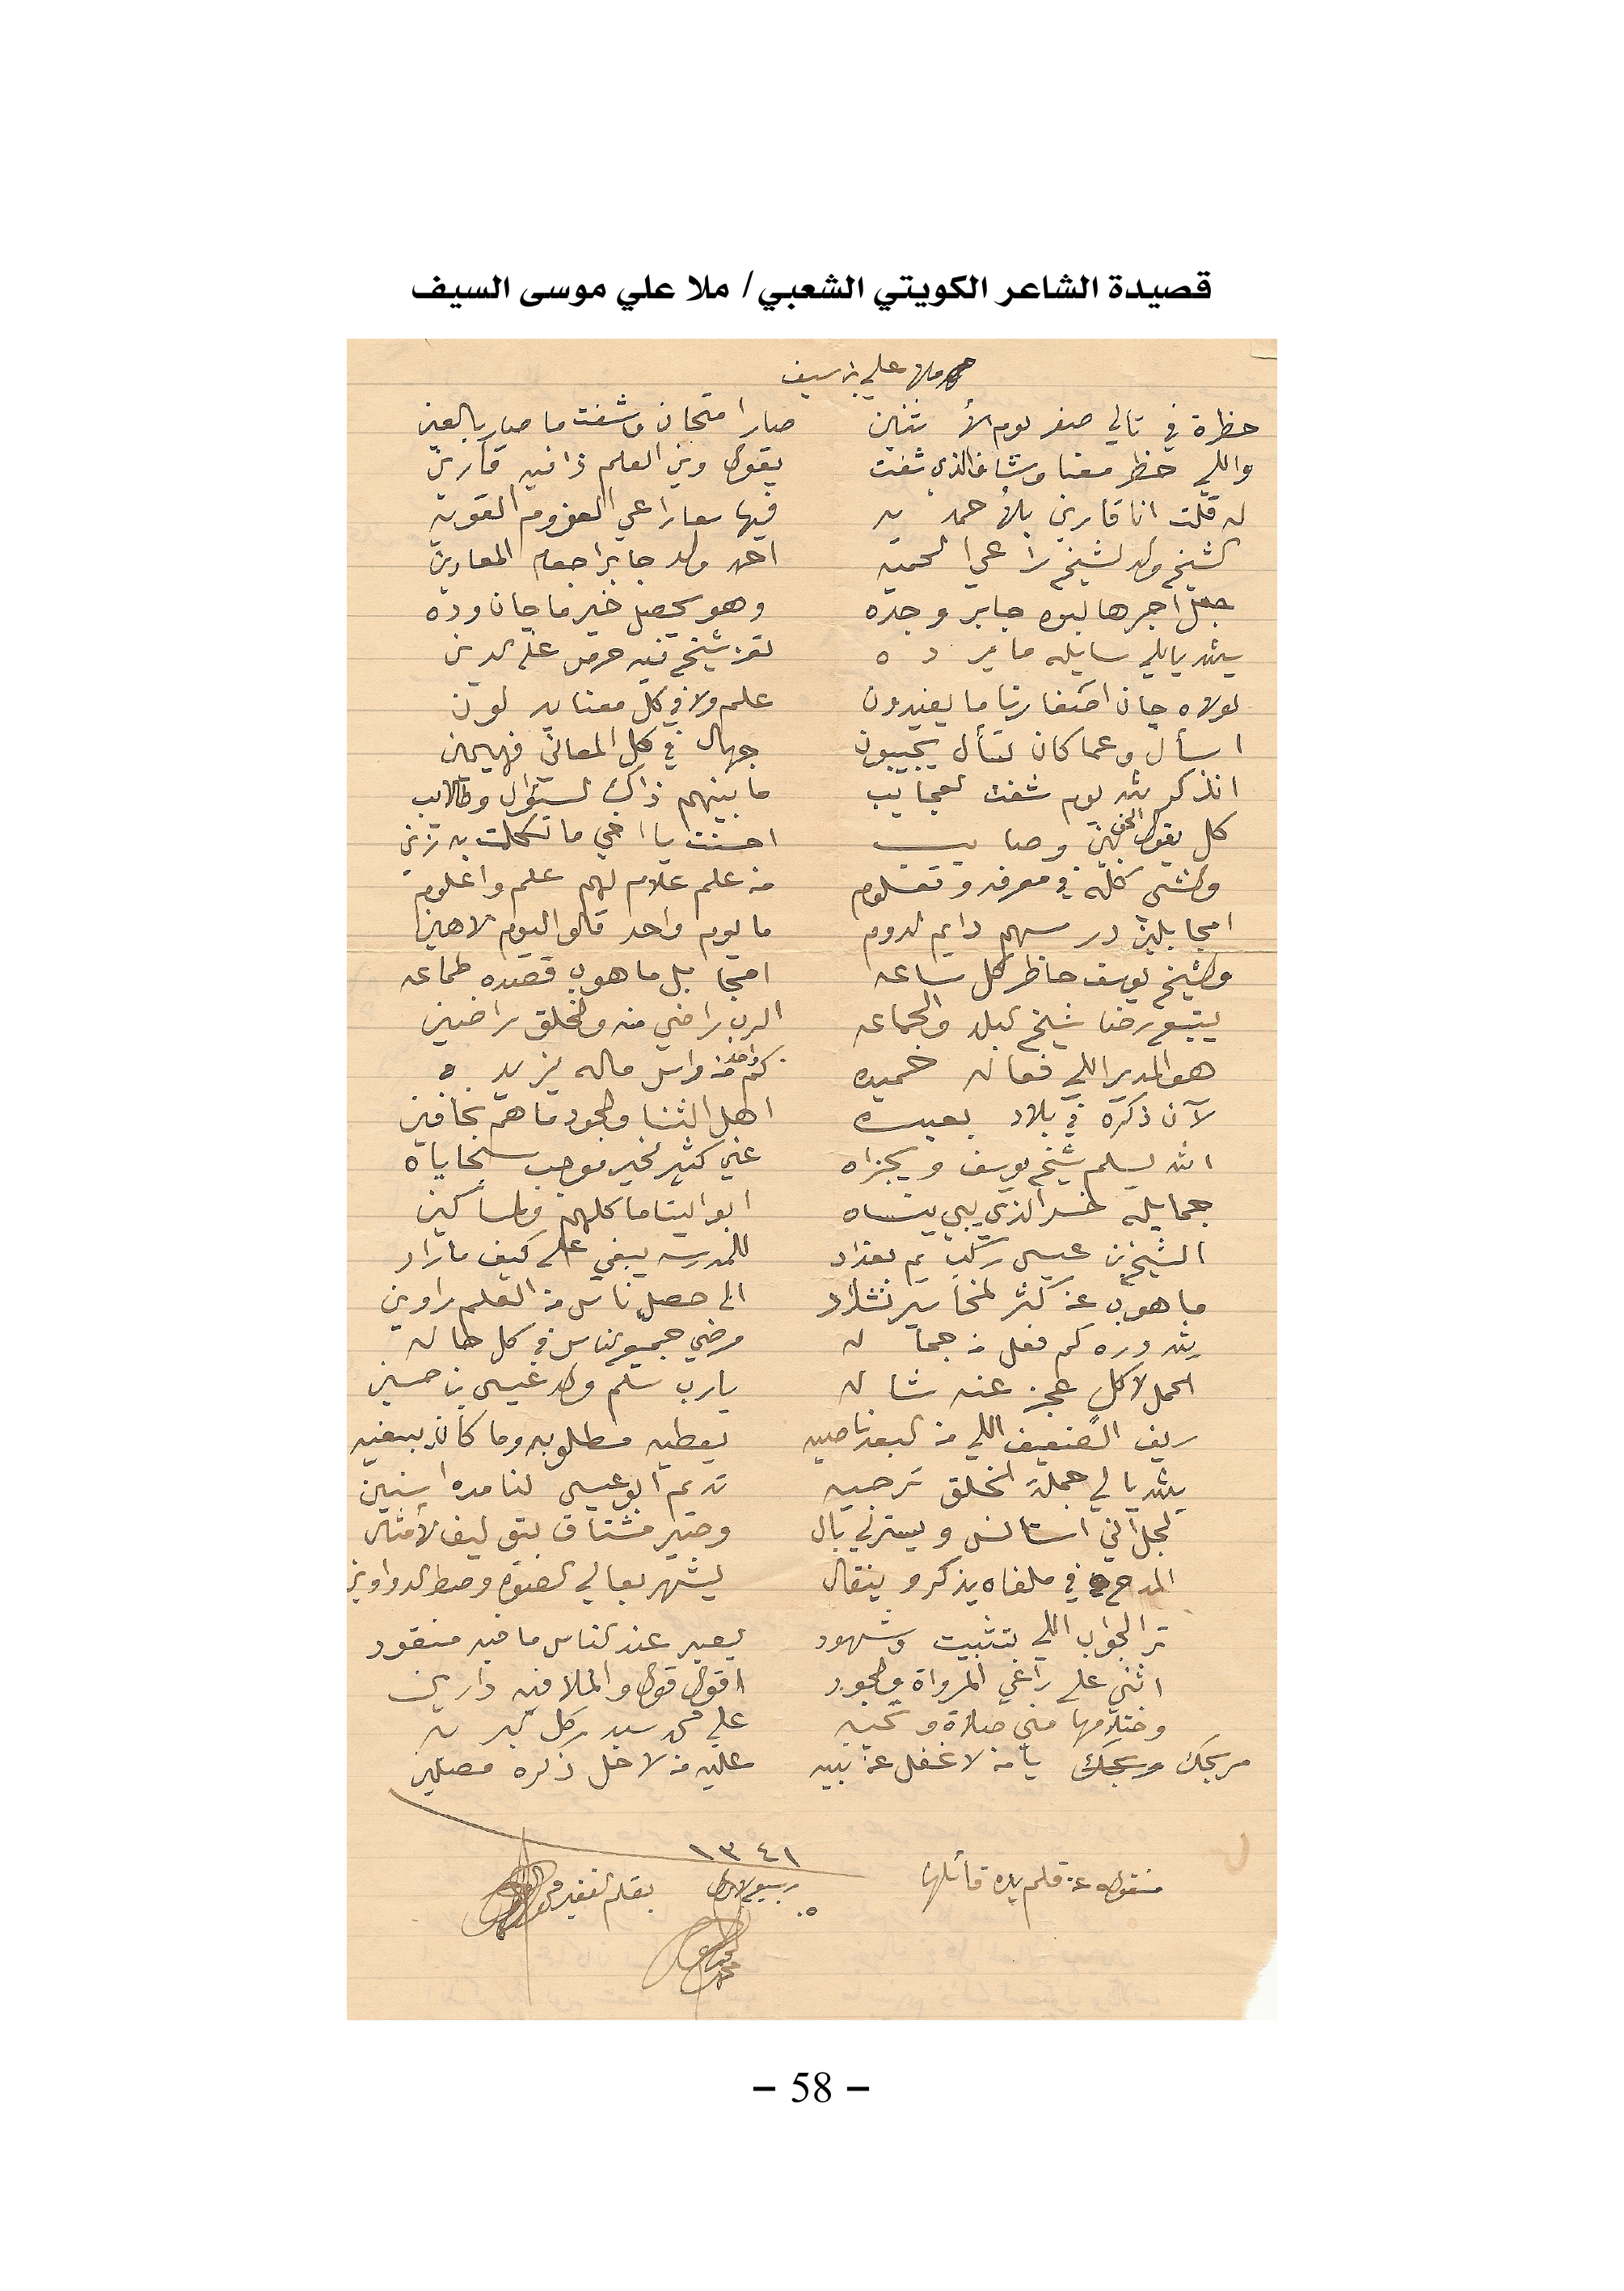 قصيدة الشاعر الكويتي الشعبي/ ملا علي موسى السيف
ملا علي بن سيف
حظرة في تالي صفر يوم الأثنين صار امتحان وشفت ما صار بالعين
واللي حظر معنا وشاف الذي شفت يقول وين العلم ذا فيه قارين
له قلت انا قارين بالأحمديه فيها سعا راعي العزوم القويه
الشيخ ولد الشيخ راعي الحميه احمد ولد جابر اجعله المعادين
جعل اجرها لبوه جابر وجده وهو يحصل خير ما جان وده
سايله ما يرده شيخ فيه حرص على الدين
لولاه جان اصغارنا ما يفيدون علم ولا في كل معنا يدلون
اسأل وعما كان تسأل يجيبون جهال في كل المعاني فهيمين
انذكر لله يوم شفت العجايب ما بينهم ذاك السؤال وطالب
كل يقول وصايب احسنت يا اخي ما تكلمت به زين
في معرفه وتعلوم من علم علام لهم علم واعلوم
امجابلين درسهم دايم الدوم ما يوم واحد قالوا اليوم لاهين
والشيخ يوسف حاظر كل ساعه امجابل ما هوب قصده طماعه
يتبع رضا شيخ البلد والجماعه الرب راضي منه والخلق راضين
هو المدير اللي فعاله حميده كم واحد من راس ماله يزيده
لآن ذكره في بلاد بعيده اهل الثنا والجود ما هم بخافين
الله يسلم شيخ يوسف ويجزاه عني كثير الخير موجب سجاياه
جمايله خسر الذي يبي ينساه ابو اليتاما كلهم والمساكين
الشيخ بن عيسى ركب يم بغداد للمدرسه يبغي على كيف ما راد
ما هوب عن كثر المخاسير نشاد الى حصل ناس من العلم راوين
لله دره كم فعل من جماله مرضي جميع الناس في كل حاله
الحمل لا كل عجز عنه شاله يارب سلم ولد عيسى بن حسين
ريف الضعيف اللي من البعد ناصيه يعطيه مطلوبه وما كان يبغيه
لله يا لي جملة الخلق ترجيه تديم ابو عيسى لنا مده اسنين
لجل آني استانس ويسترلي بال وصير مشتاق بتوليف الأمثال
المدح في ملفاه يذكر وينقال ليشهر بعالي الصوت وسط الدواوين
تر الجواب اللي بتثبيت وشهود يعبر عند الناس ما فيه منقود
اثني على راعي المرواة والجود اقول قول والملا فيه دارين
وختلامها مني صلاة وتحيه على محمد سيد كل البريه
يا من لا غفل عن نبيه عليه من لا خل ذكره مصلين
منقول عن قلم يده قائلها
١٣٤١
ربيع الاول
٥
بقلم الفقير
– 58 –